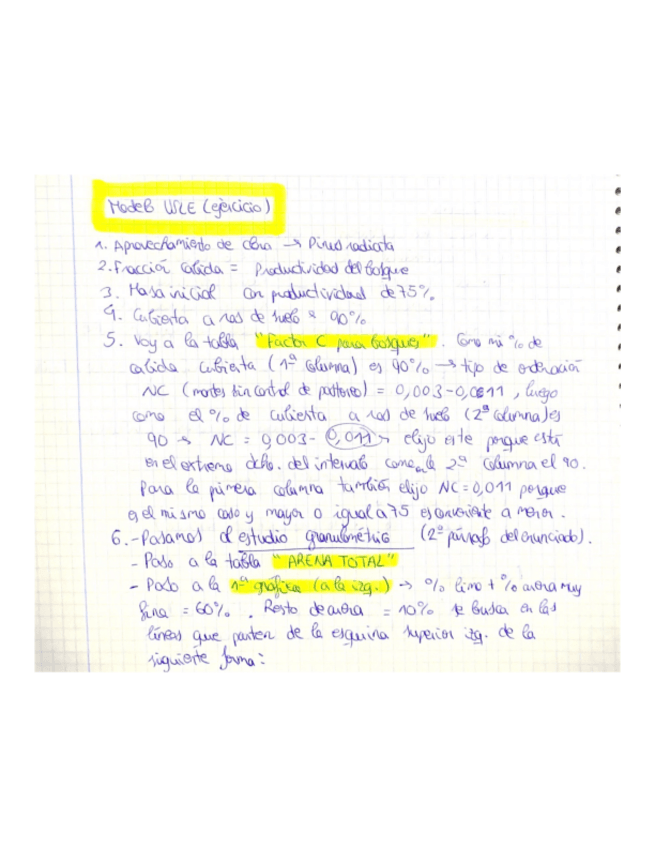 Modelo USLE (ejercicio)
1. Aprovechamiento de → Pinus radiata
2. Fracción cabida = Productividad del bosque
3. Masa inicial con productividad de 75%.
4. Cubierta a ras de suelo = 90%
5. Voy a la tabla "Factor C para bosques". Como mi % de
cabida cubierta (1ª columna) es 90% → tipo de ordenación
NC (montes sin control de pastoreo) = 0,003-0,011, luego
como el % de cubierta a ras de suelo (2ª columna) es
90 → NC = 0,003- 0,011 → elijo este porque está
en el extremo dcho. del intervalo como en la 2ª columna el 90.
Para la primera columna también elijo NC=0,011 porque
es el mismo caso y mayor o igual a 75 es a menor.
6. - Pasamos al estudio granulométrico (2º párrafo del enunciado).
- Paso a la tabla "ARENA TOTAL"
- Paso a la 1ª gráfica (a la izq.) → % limo + % arena muy
fina = 60%. Resto de arena = 10% se busca en las
líneas que parten de la esquina superior izq. de la
siguiente forma: